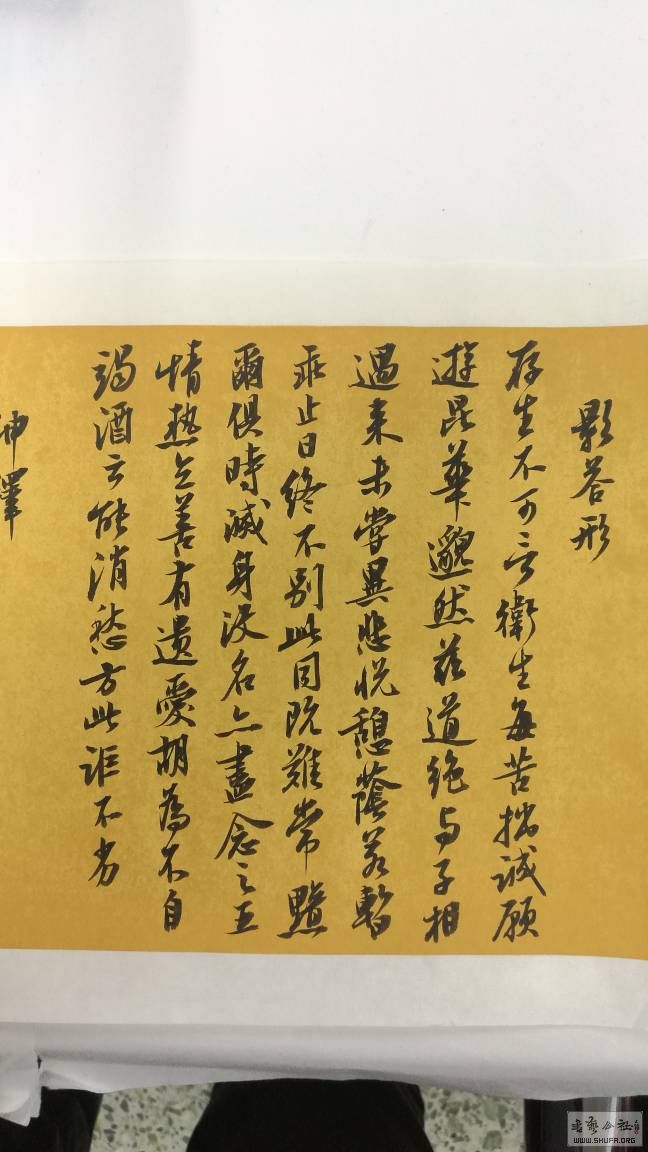 影荅形
存生不可言衛生每苦拙誠願
遊崑華邈然茲道絶与子相
遇来未嘗異悲悦憩蔭若暫
乖止日終不別此同既難常黯
爾俱時滅身没名亦盡念之五
情熱立善有遺愛胡為不自
竭酒云能消愁方此詎不劣
神釋
WWW.SHUFA.ORG